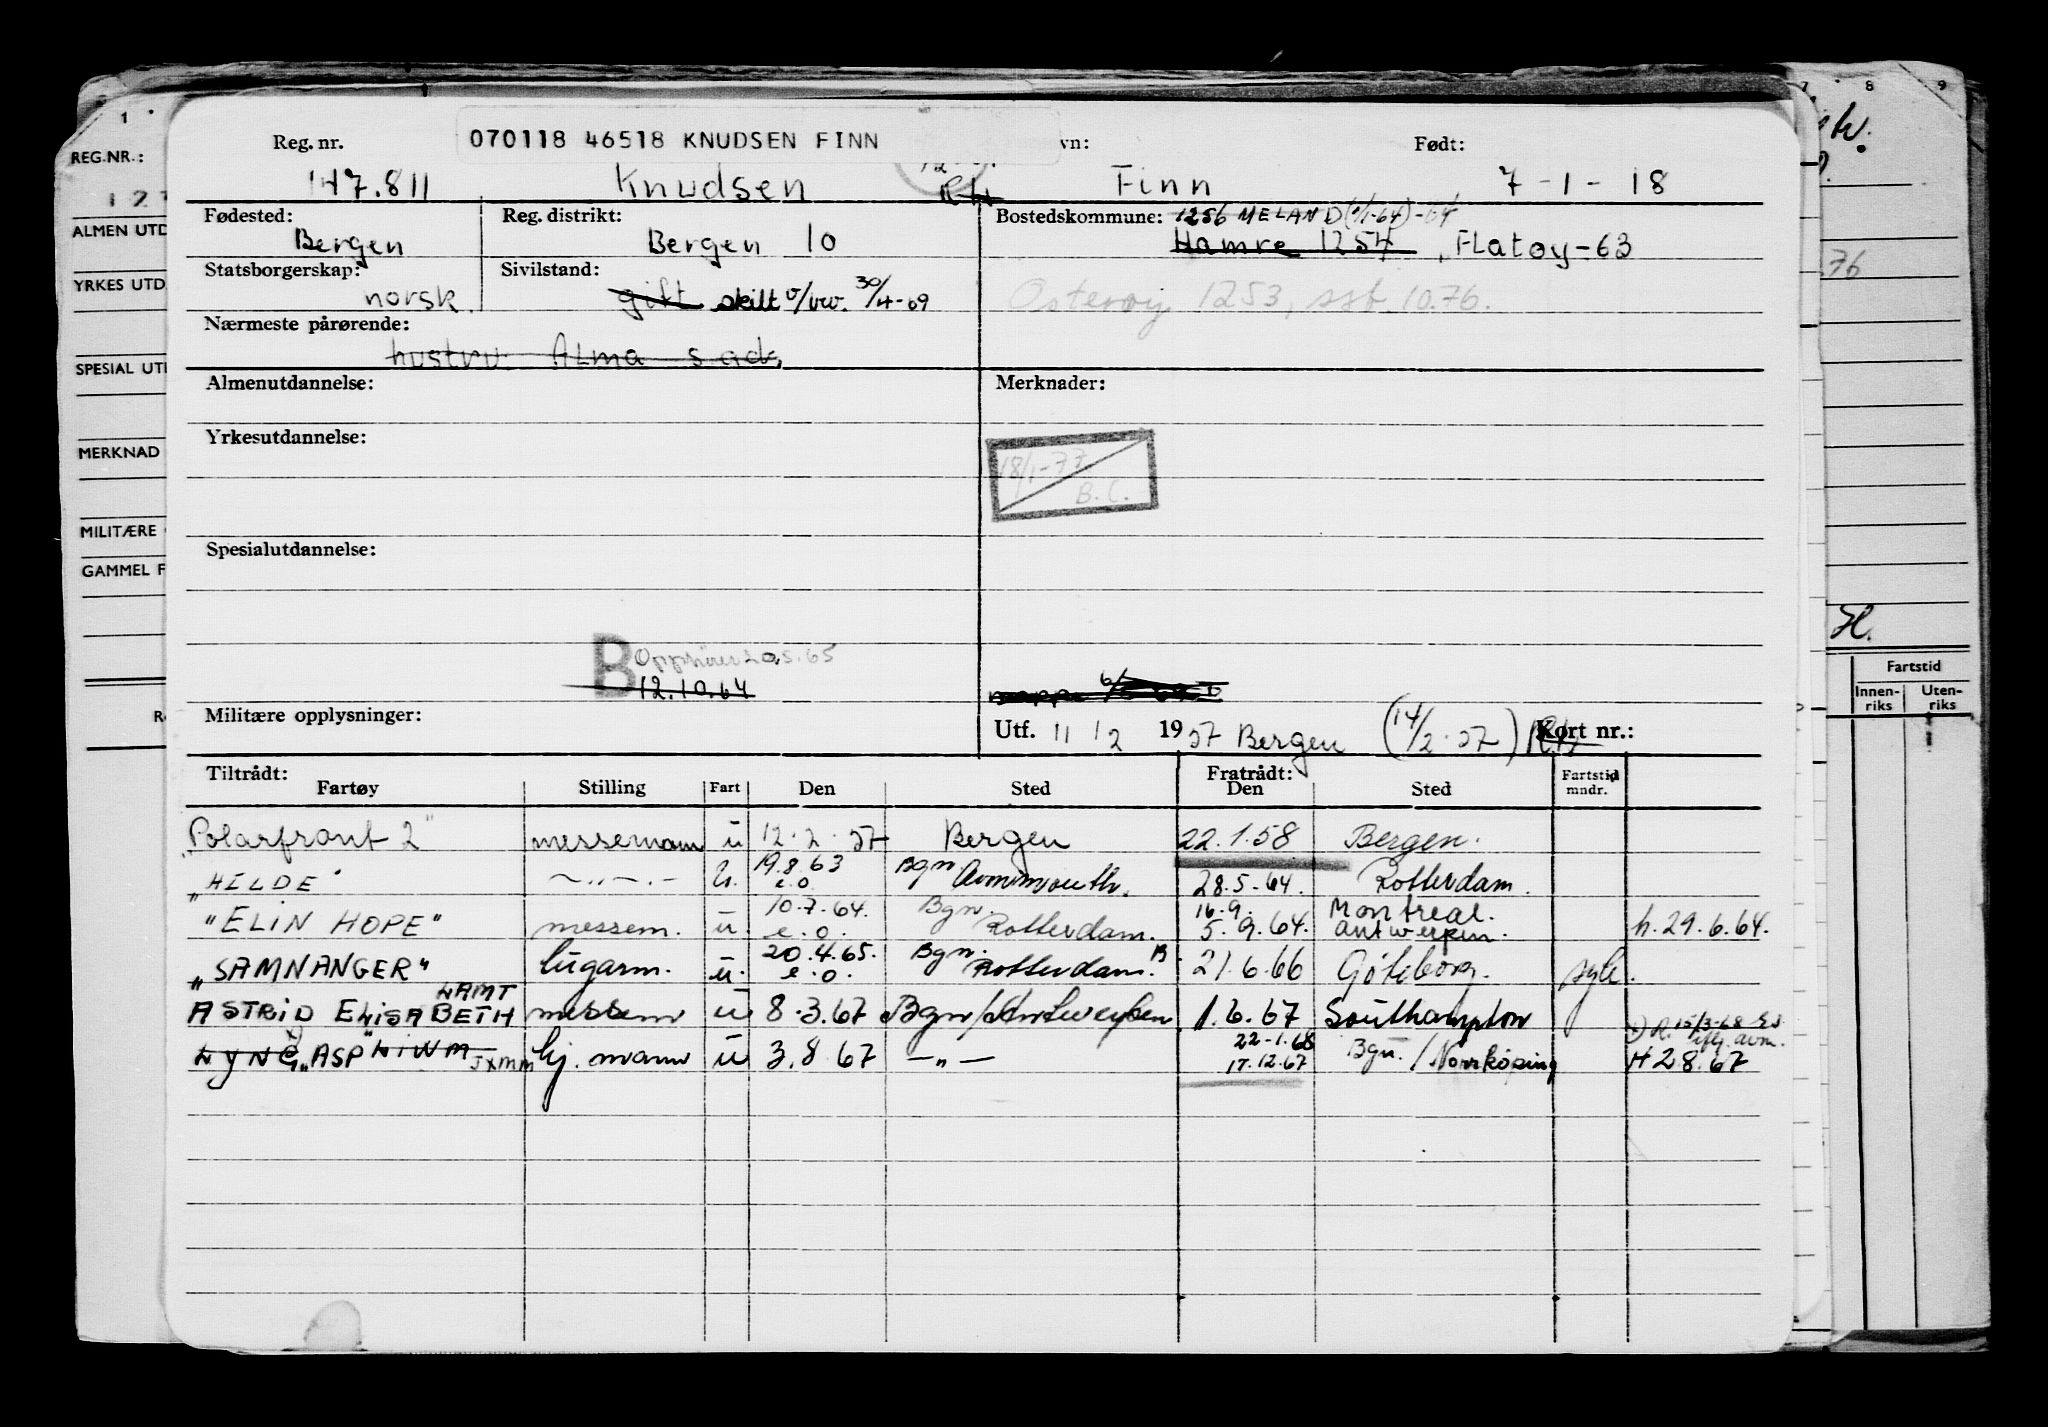 1 7 8 9
070118 46518 KNUDSEN FINN
Reg. nr. vn: Født:
147.811 Knudsen Finn 7-1-18
Fødested: Reg. distrikt: Bostedskommune: 1256 MELAND (1/1-64)-64
Bergen Bergen 10 Hamre 1254, Flatøy-63
Statsborgerskap: Sivilstand:
norsk. gift skilt v/bv. 30/4-69 Osterøy 1253, ssb. 10.76.
Nærmeste pårørende:
hustru Alma s. ad.
Almenutdannelse: Merknader:
Yrkesutdannelse:
18/1-77
B.C.
Spesialutdannelse:
B Opphører 20.5.65
12.10.64
Militære opplysninger: Utf. 11/2 1957 Bergen (14/2-57) Kort nr.:
Tiltrådt: Fratrådt: Fartstid
Fartøy Stilling Fart Den Sted Den Sted mndr.
"Polarfront 2" messemann u 12.2.57 Bergen 22.1.58 Bergen.
"HILDE" -"- u. 19.8.63 e.o. Bgn Avonmouth. 28.5-64. Rotterdam.
"ELIN HOPE" messem. u 10.7.64. e.o. Bgn. Rotterdam. 16.9. 5.9.64. Montreal. Antwerpen. h. 29.6.64.
"SAMNANGER" lugarm. u. 20.4.65. e.o. Bgn. Rotterdam. B 21.6.66 Göteborg. syk.
LAMT
ASTRID ELISABETH messem u 8.3.67 Bgn/Antwerpen 1.6.67 Southampton
LYNG "ASP" hj. mann u 3.8.67 -"- 22-1.68 17.12.67 Bgn. / Norrköping H 28.67
REG.NR.:
ALMEN UTD
YRKES UTD
SPESIAL UTD
MERKNAD
MILITÆRE
GAMMEL F
76
H.
Fartstid
Innen-riks Uten-riks